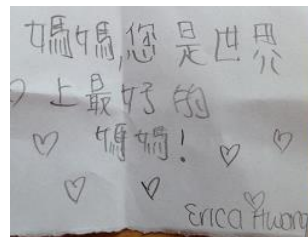 媽媽,您是世界
上最好的
媽媽!
Erica Hwang